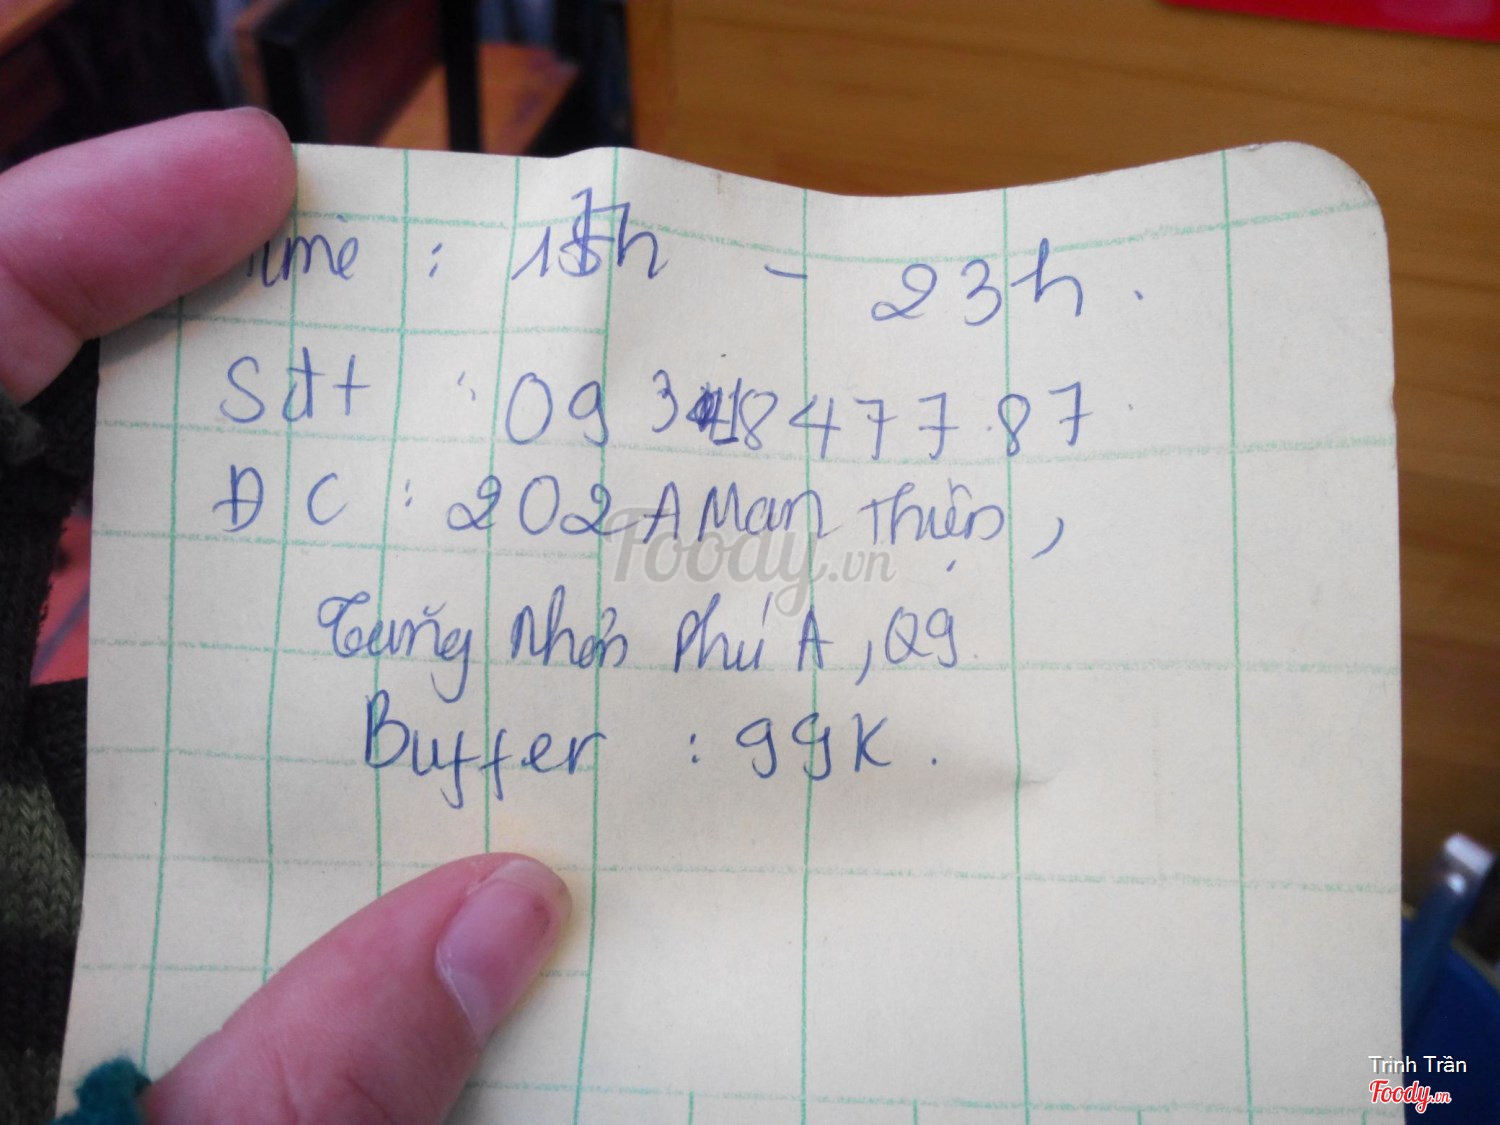 Time : 17h - 23h.
Sđt : 09 3 8477.87
ĐC : 202A Man Thiện,
Tăng Nhơn Phú A, Q9.
Buffer : 99K.
Foody.vn
Trinh Trần
Foody.vn